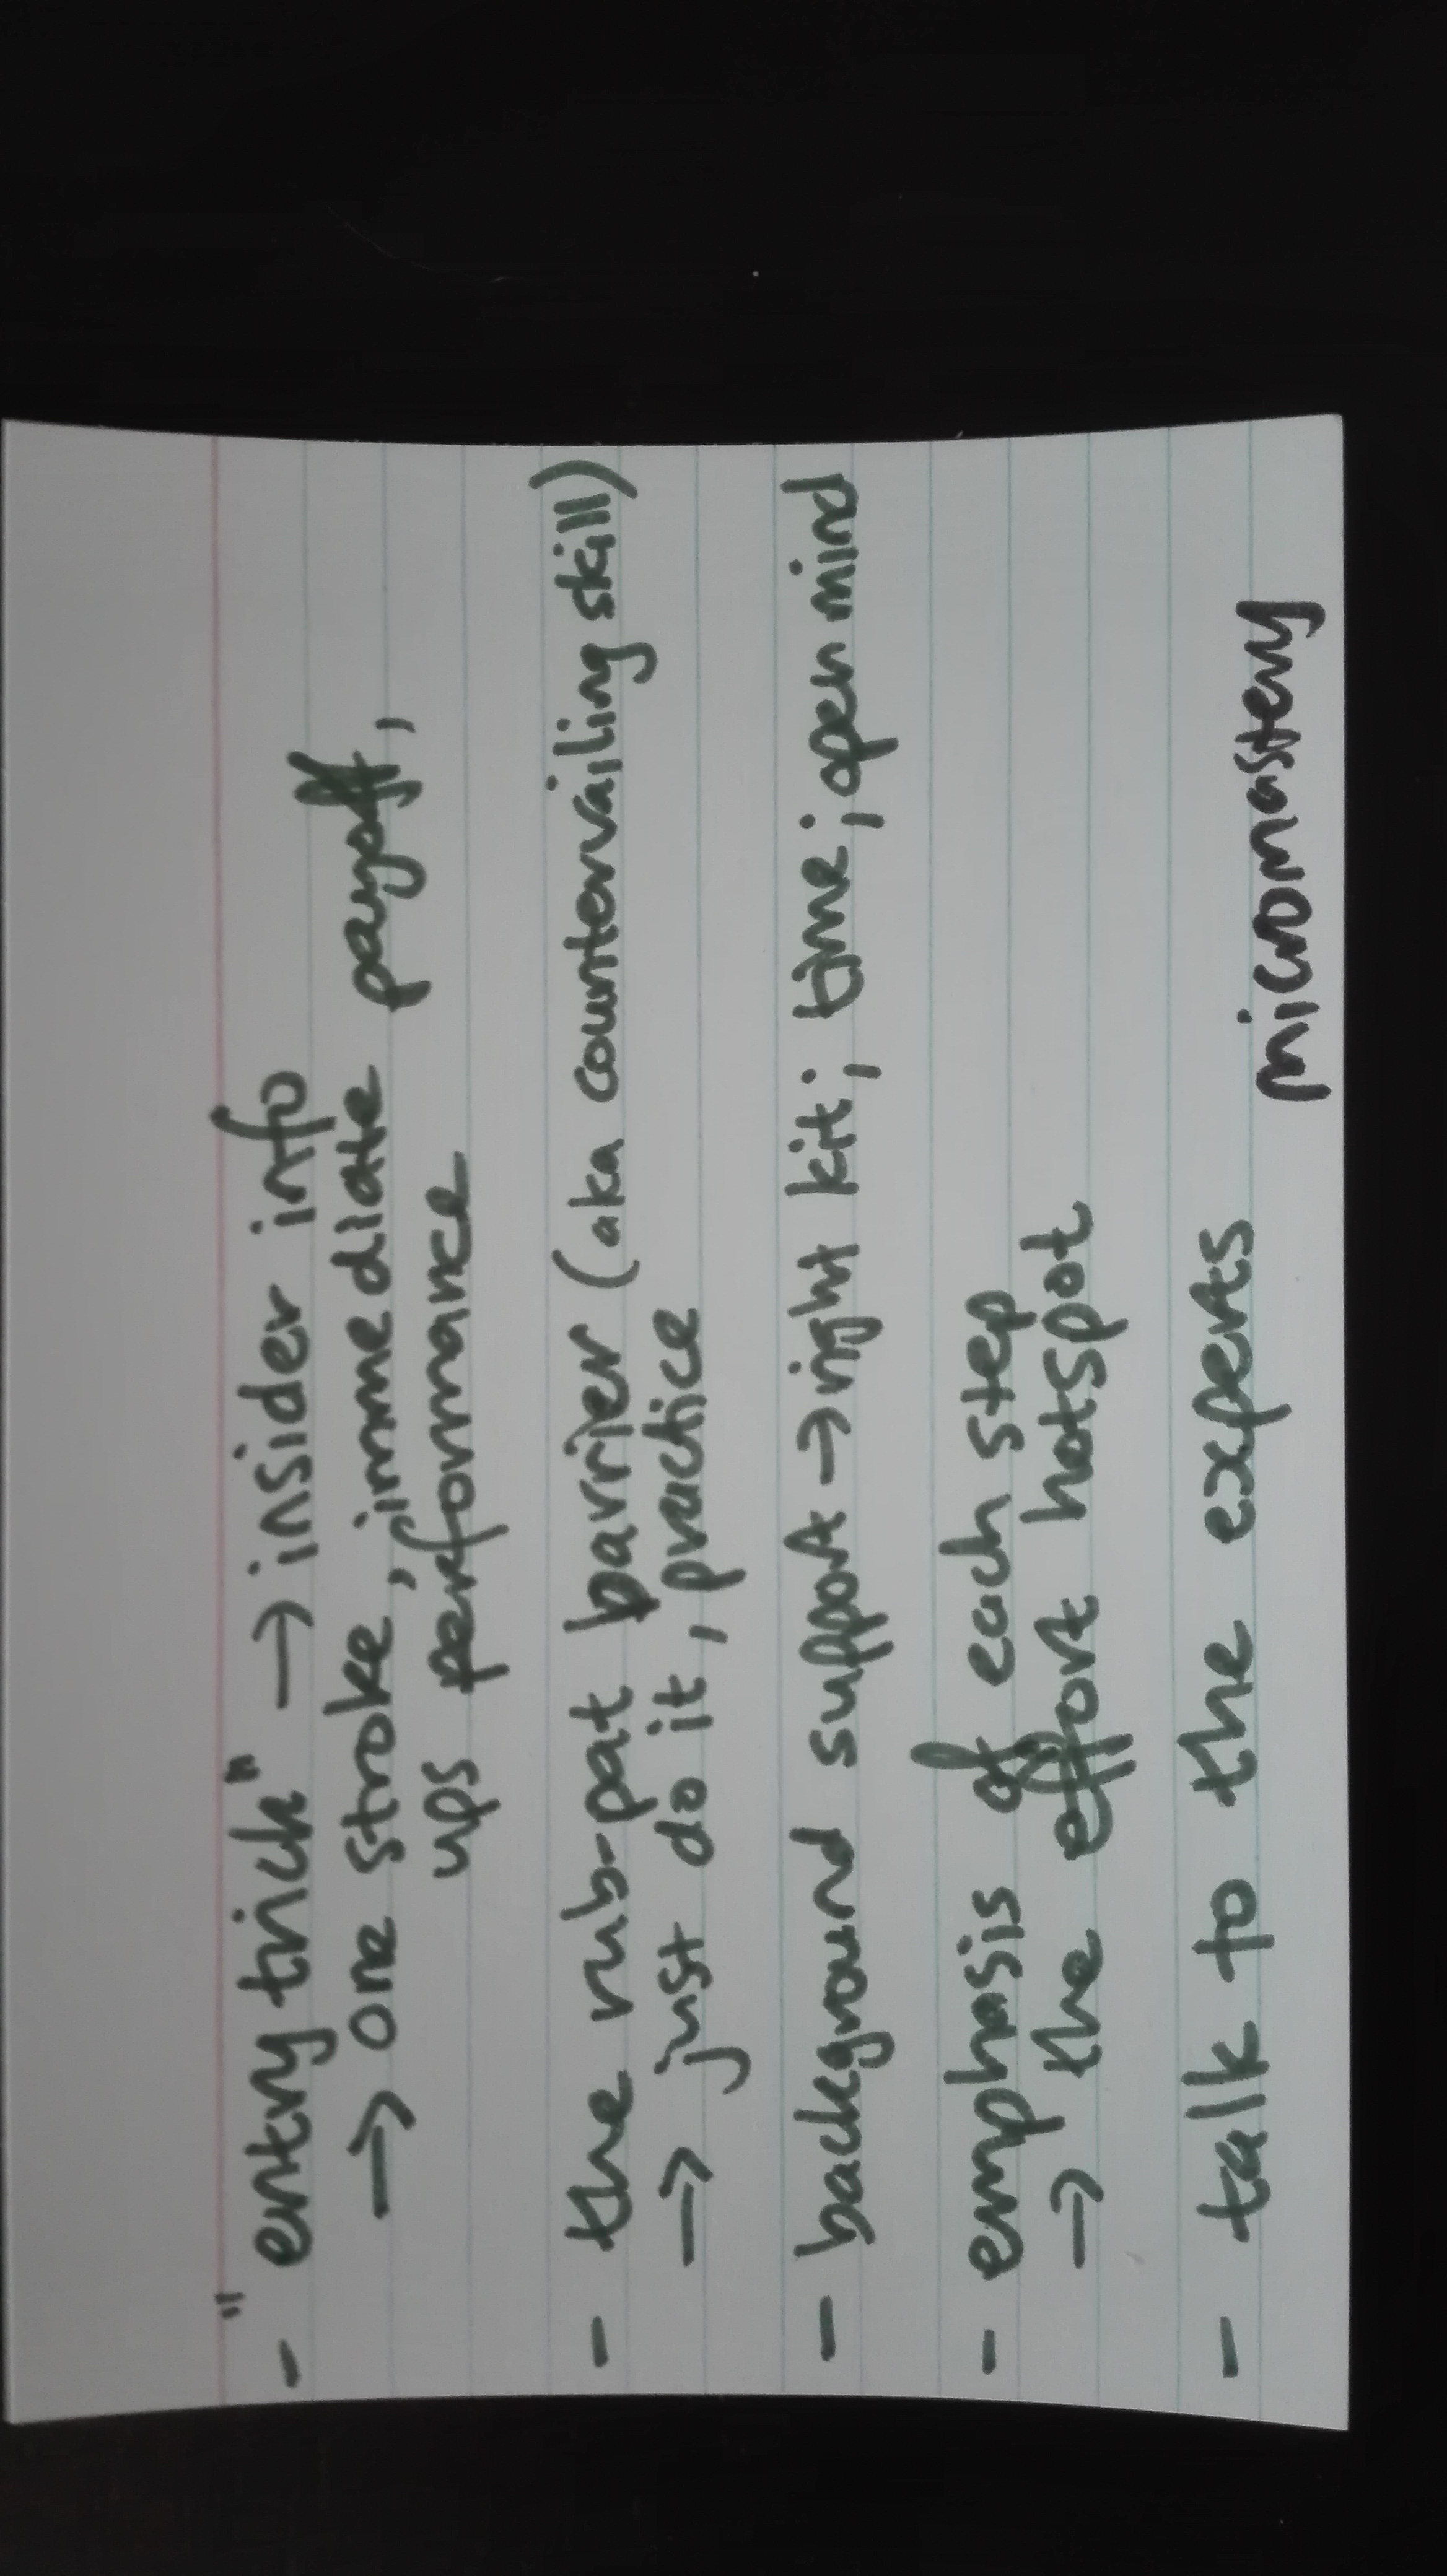 - "entry trick" → insider info
→ one stroke, immediate payoff,
ups performance
- the rub-pat barrier (aka countervailing skill)
→ just do it, practice
- background support → right kit; time; open mind
- emphasis of each step
→ the effort hotspot
- talk to the experts
micromastery